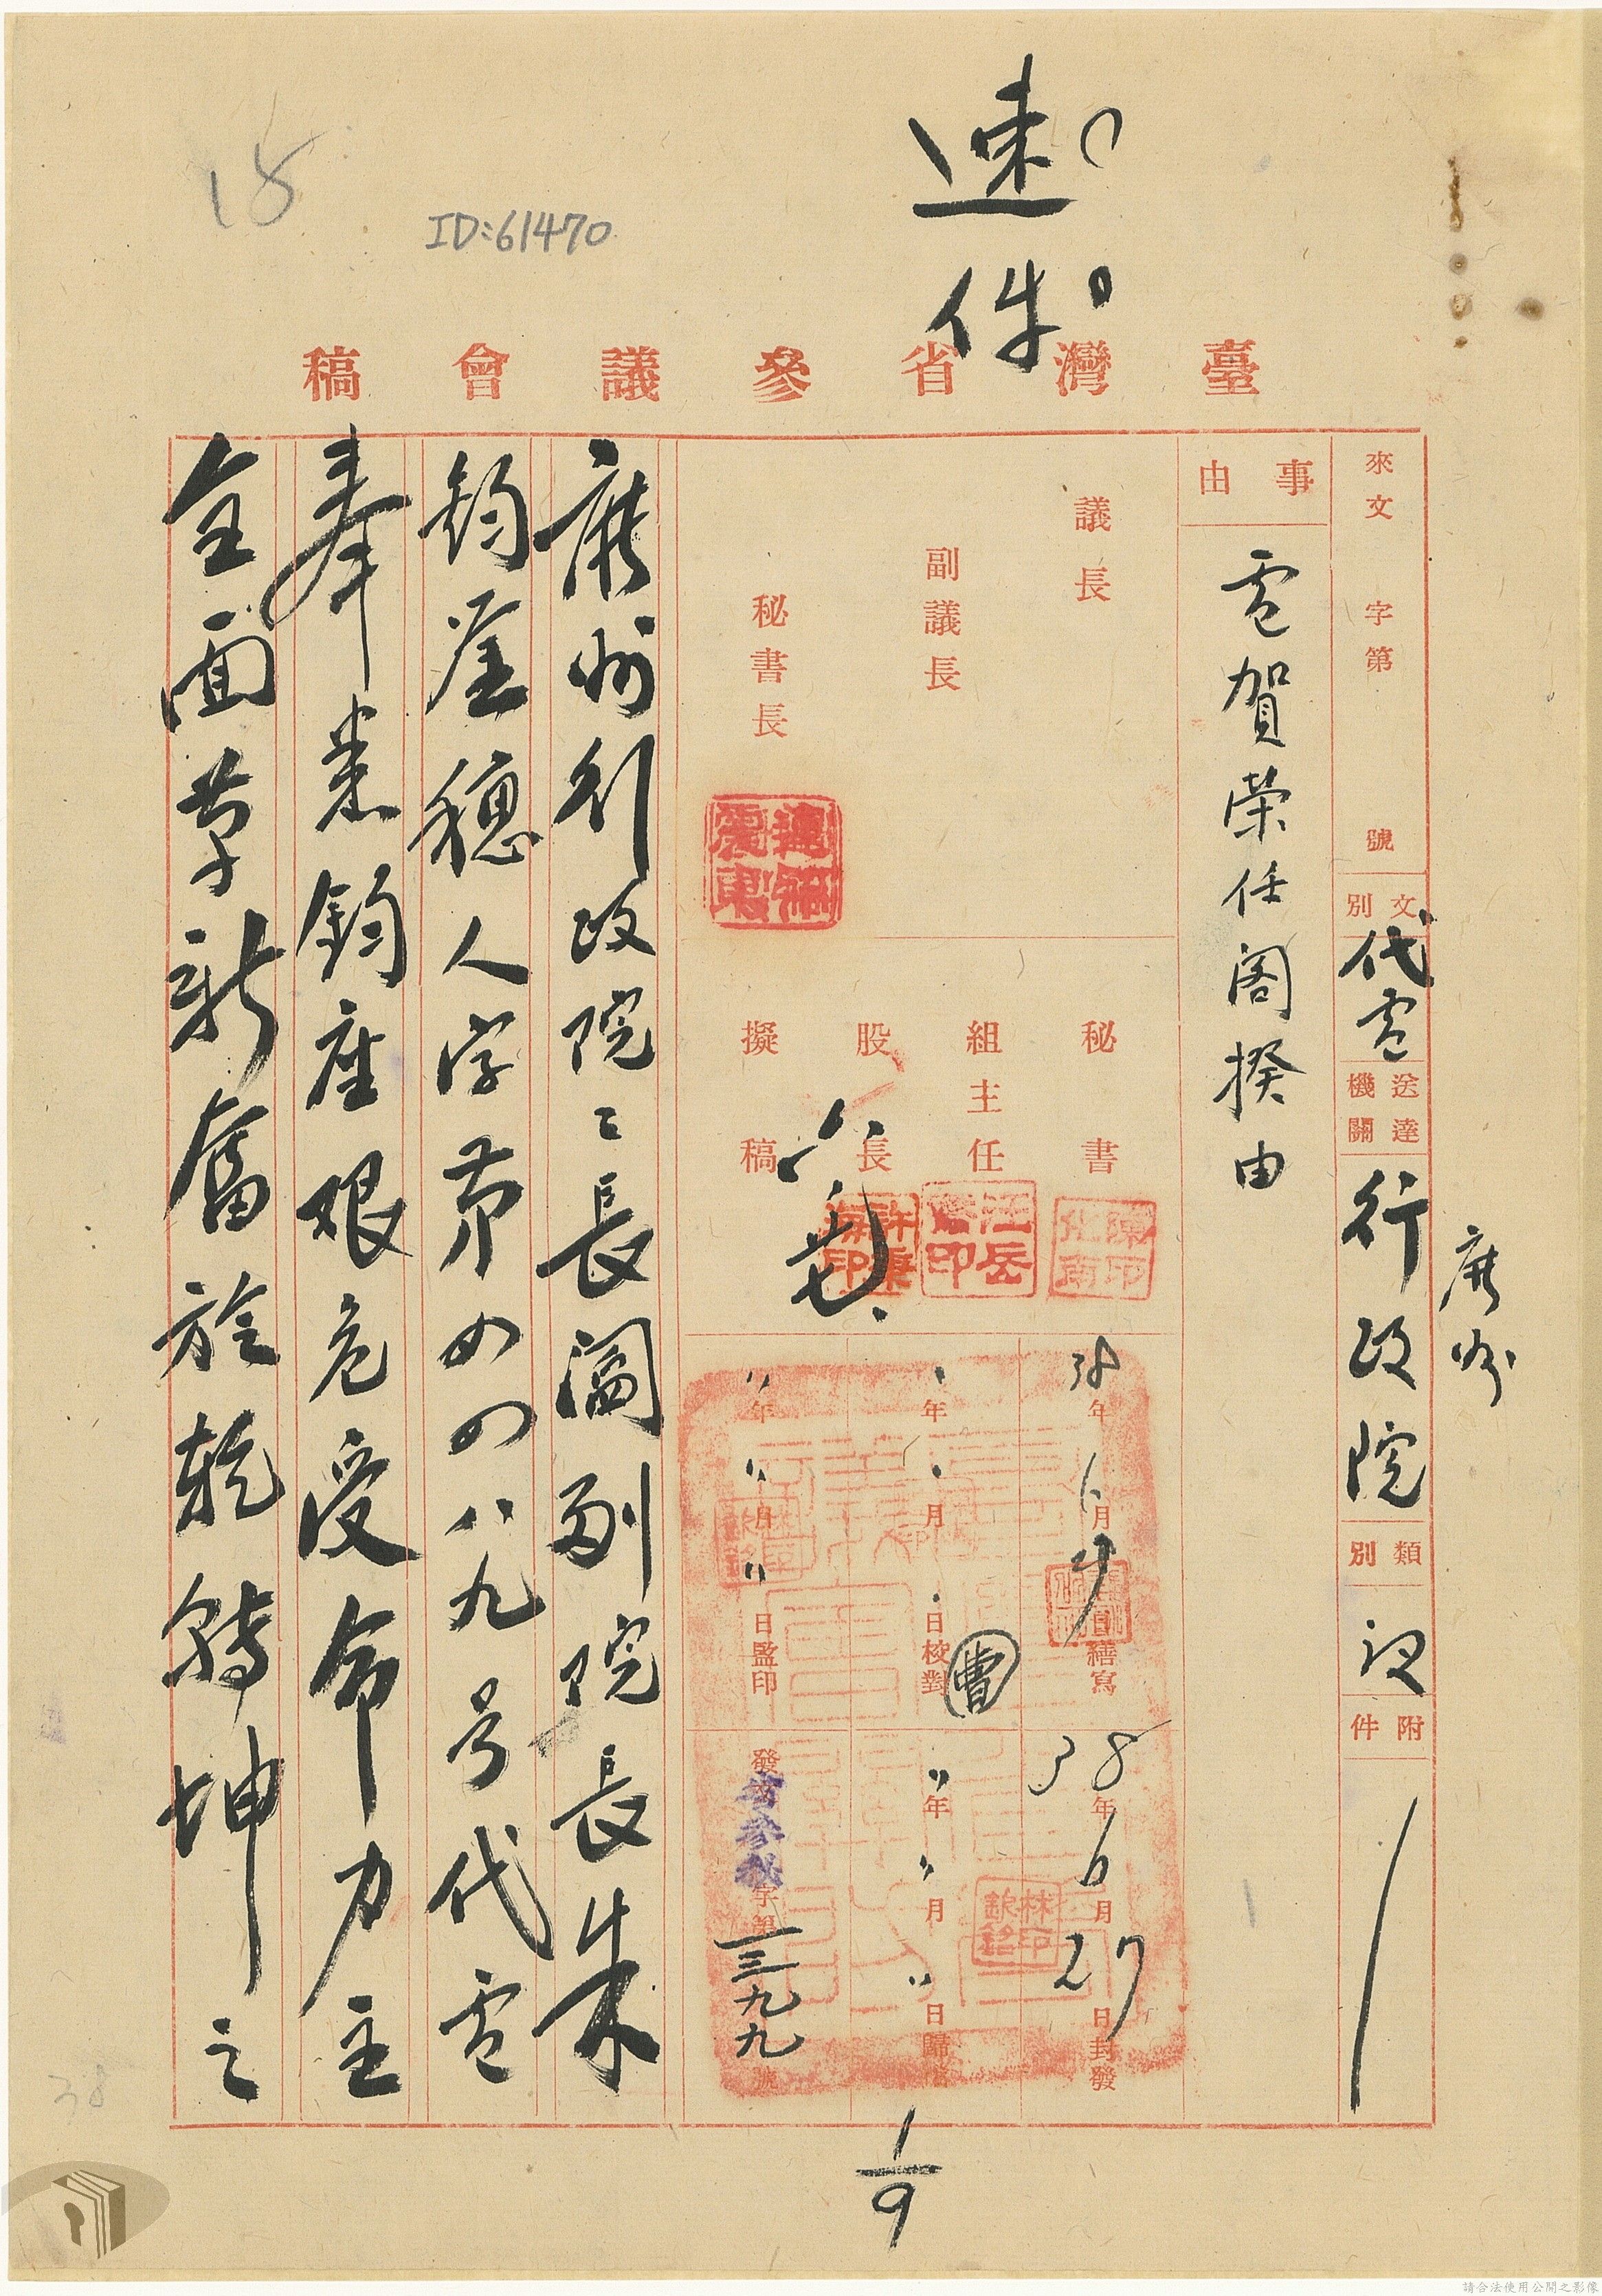 18
ID:61470
速件
臺灣省參議會稿
來文 字第 號
文別 代電
送達機關 行政院
廣州
類別
附件
事由
電賀榮任閣揆由
議長
副議長
秘書長
連震東
秘書
組主任
股長
擬稿
38年6月 日繕寫
年 月 日校對
曹
〃年〃月〃日監印
38年6月27日封發
〃年〃月〃日歸檔
林印欽銘
發文省參秘字第一三九九號
廣州行政院〻長閻副院長朱
鈞鑒穗人字第四四八九号代電
奉悉鈞座艱危受命力主
全面革新奮於乾轉坤之
1/9
38
請合法使用公開之影像